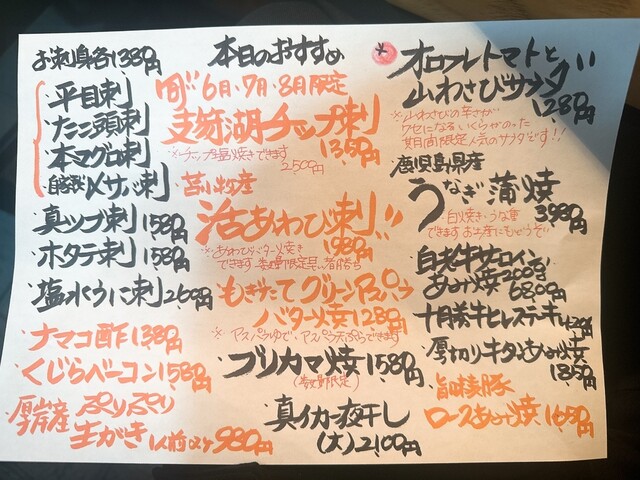 本日のおすすめ
お刺身各1380円
平目刺
たこ頭刺
本マグロ刺
自家製〆サバ刺
真ツブ刺 1580円
ホタテ刺 1580円
塩水うに刺 2600円
ナマコ酢 1380円
くじらベーコン 1580円
厚岸産 ぷりぷり
生がき 1人前2ケ 980円
旬 6月・7月・8月限定
支笏湖チップ刺
1350円
※チップ塩焼きできます
2500円
苫小牧産
活あわび刺
1980円
※あわびバター焼き
できます 数量限定早い者勝ち
もぎたてグリーンアスパラ
バター焼 1280円
※アスパラゆで、アスパラ天ぷらできます
ブリカマ焼 1580円
(数量限定)
真イカ一夜干し
(大) 2100円
オロフレトマトと
山わさびサラダ
1280円
※山わさびの辛さが
クセになるいくらがのった
期間限定人気のサラダです!!
鹿児島県産
うなぎ蒲焼
3980円
白焼き・うな重
できます お土産にもどうぞ
白老牛サロイン
あみ焼200g
6800円
十勝牛ヒレステーキ
厚切り牛タンあみ焼
1850円
旨味豚
ロースあみ焼 1650円